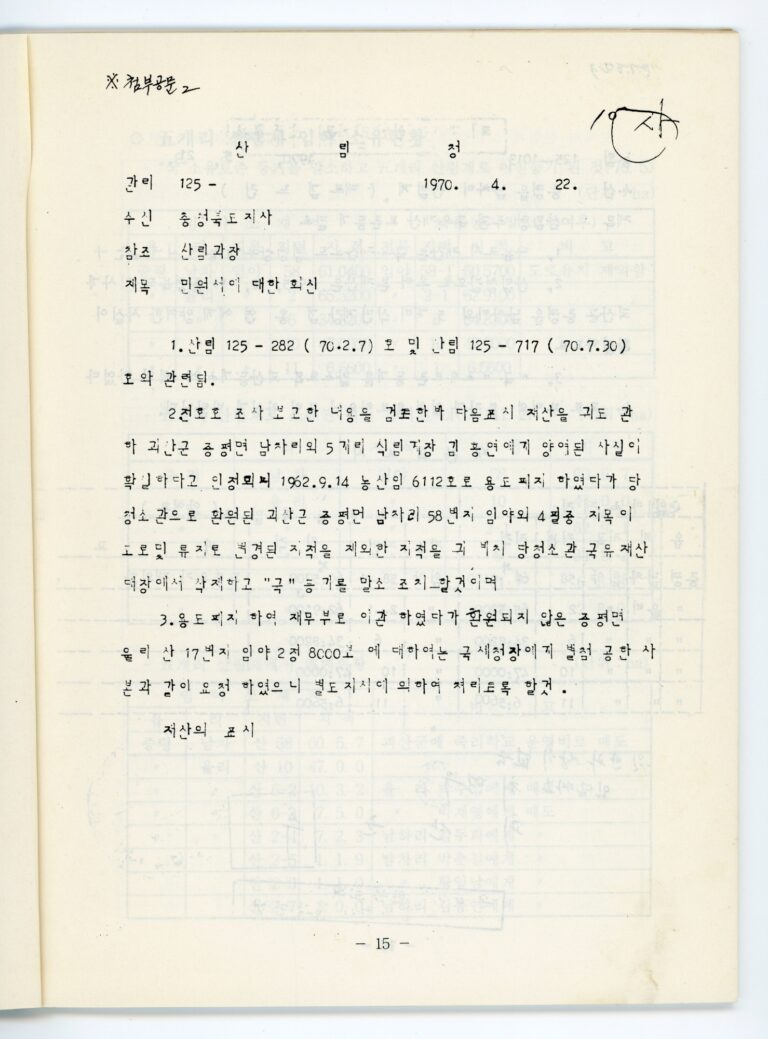 ※ 첨부공문 2
산 림 청
관리 125 - 1970. 4. 22.
수신 충청북도지사
참조 산림과장
제목 민원서에 대한 회신
1. 산림 125 - 282 ( 70.2.7) 호 및 산림 125 - 717 ( 70.7.30)
호와 관련됨.
2. 전호로 조사 보고한 내용을 검토한바 다음표시 재산을 귀도 관
하 괴산군 증평면 남차리외 5개리 식림계장 김 홍연에게 양여된 사실이
확실하다고 인정되며 1962.9.14 농산임 6112호로 용도폐지 하였다가 당
청소관으로 환원된 괴산군 증평면 남차리 58번지 임야외 4필중 지목이
도로및 류지로 변경된 지적을 제외한 지적을 귀 비치 당청소관 국유재산
대장에서 삭제하고 "국" 등기를 말소 조치 할것이며
3. 용도폐지 하여 재무부로 이관 하였다가 환원되지 않은 증평면
율리 산 17번지 임야 2정 8000보 에 대하여는 국세청장에게 별첨 공한 사
본과 같이 요청 하였으니 별도지시에 의하여 처리토록 할것 .
재산의 표시
- 15 -